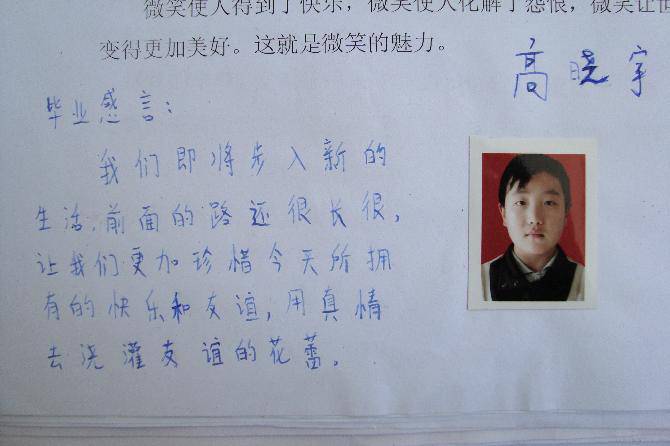 微笑使人得到了快乐，微笑使人化解了怨恨，微笑让世
变得更加美好。这就是微笑的魅力。
高晓宇
毕业感言：
我们即将步入新的
生活，前面的路还很长很，
让我们更加珍惜今天所拥
有的快乐和友谊，用真情
去浇灌友谊的花蕾。